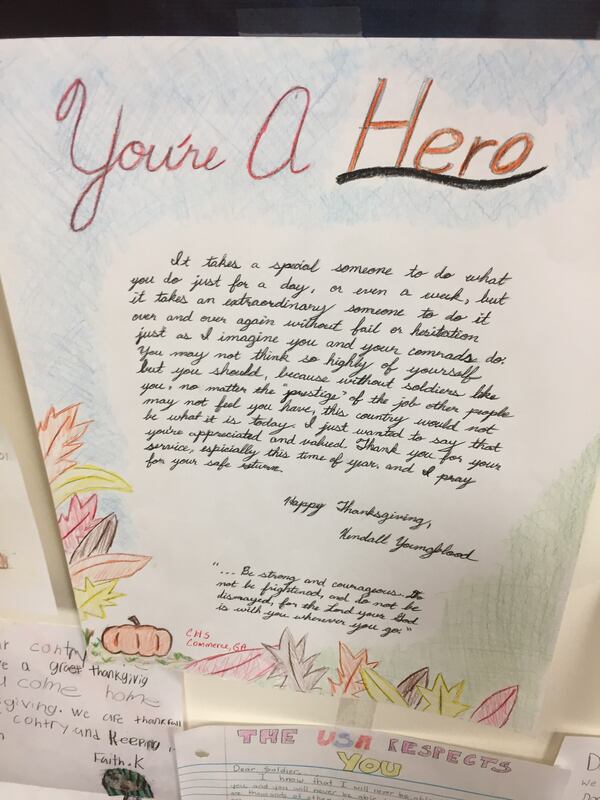 You're A Hero
It takes a special someone to do what
you do just for a day, or even a week, but
it takes an extraordinary someone to do it
over and over again without fail or hesitation
just as I imagine you and your comrads do.
You may not think so highly of yourself
but you should, because without soldiers like
you, no matter the "prestige" of the job other people
may not feel you have, this country would not
be what it is today. I just wanted to say that
you're appreciated and valued. Thank you for your
service, espicially this time of year, and I pray
for your safe return.
Happy Thanksgiving,
Kendall Youngblood
"... Be strong and courageous. Do
not be frightened, and do not be
dismayed, for the Lord your God
is with you wherever you go."
CHS
Commerce, GA
contry
a graet thankgivig
come home
giving. we are thankfull
contry and Keeping
Faith.K
THE USA RESPECTS
YOU
Dear Soldier,
I know that I will never be
you and you will never be
are thousands of other
D
We